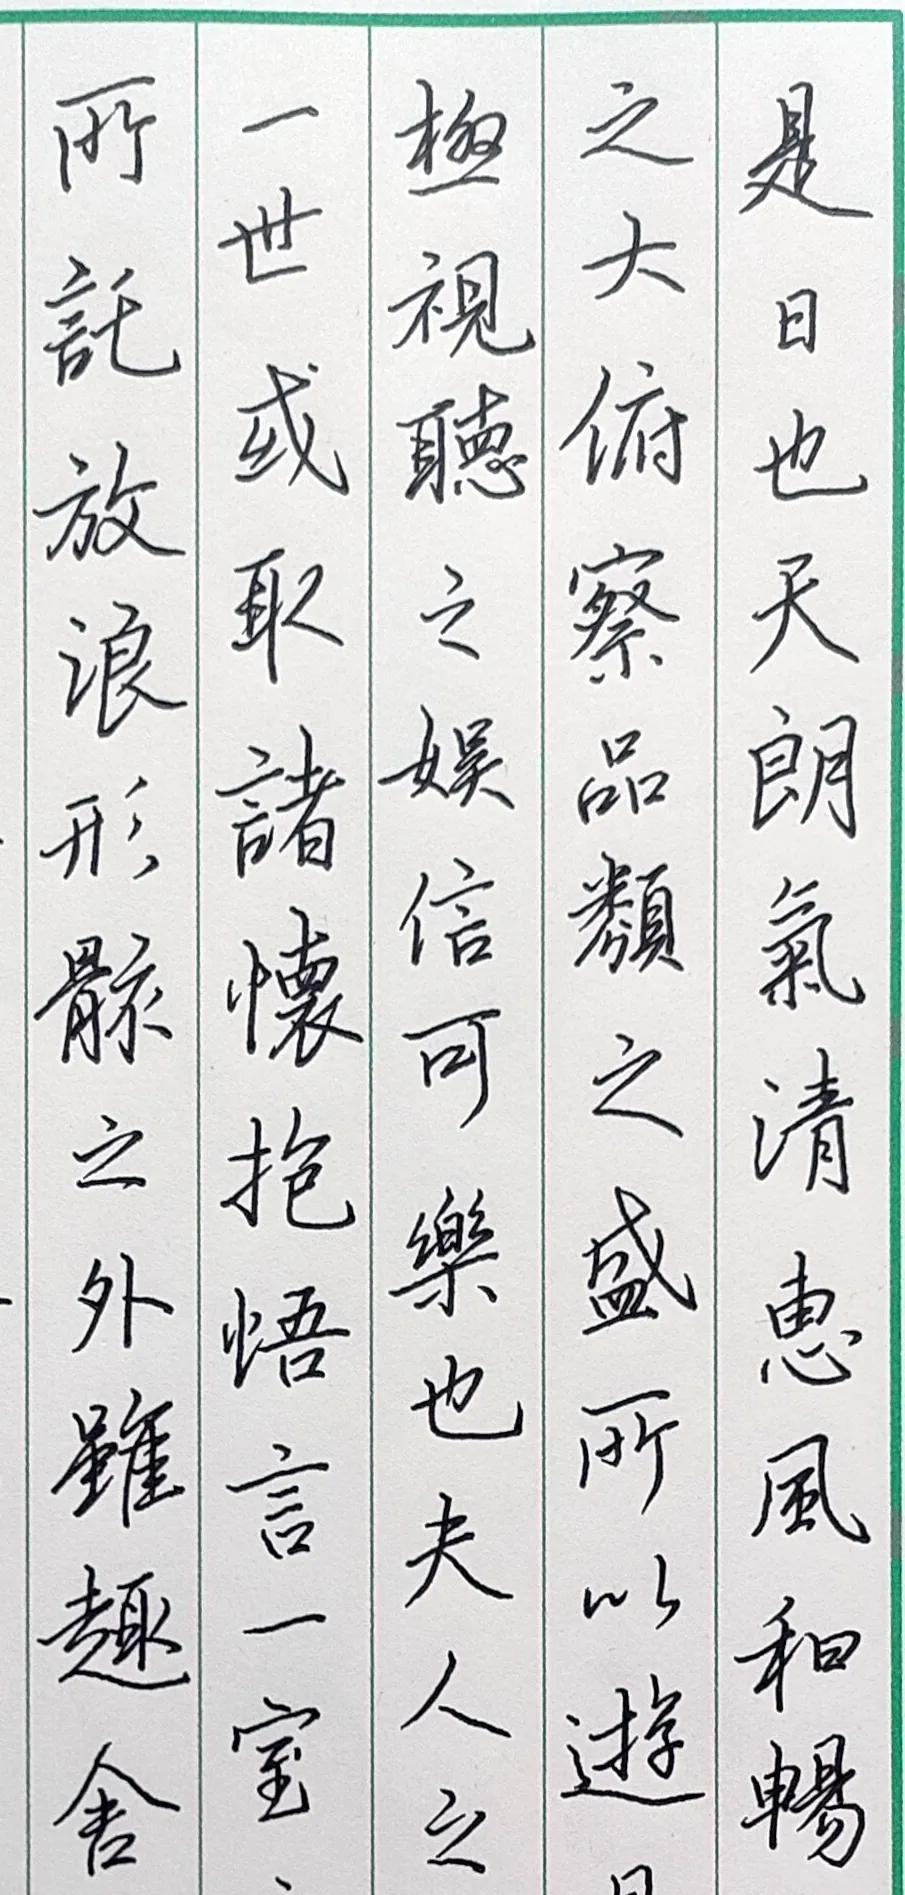 是日也天朗氣清惠風和暢
之大俯察品類之盛所以遊
極視聽之娛信可樂也夫人之
一世或取諸懷抱悟言一室
所託放浪形骸之外雖趣舍